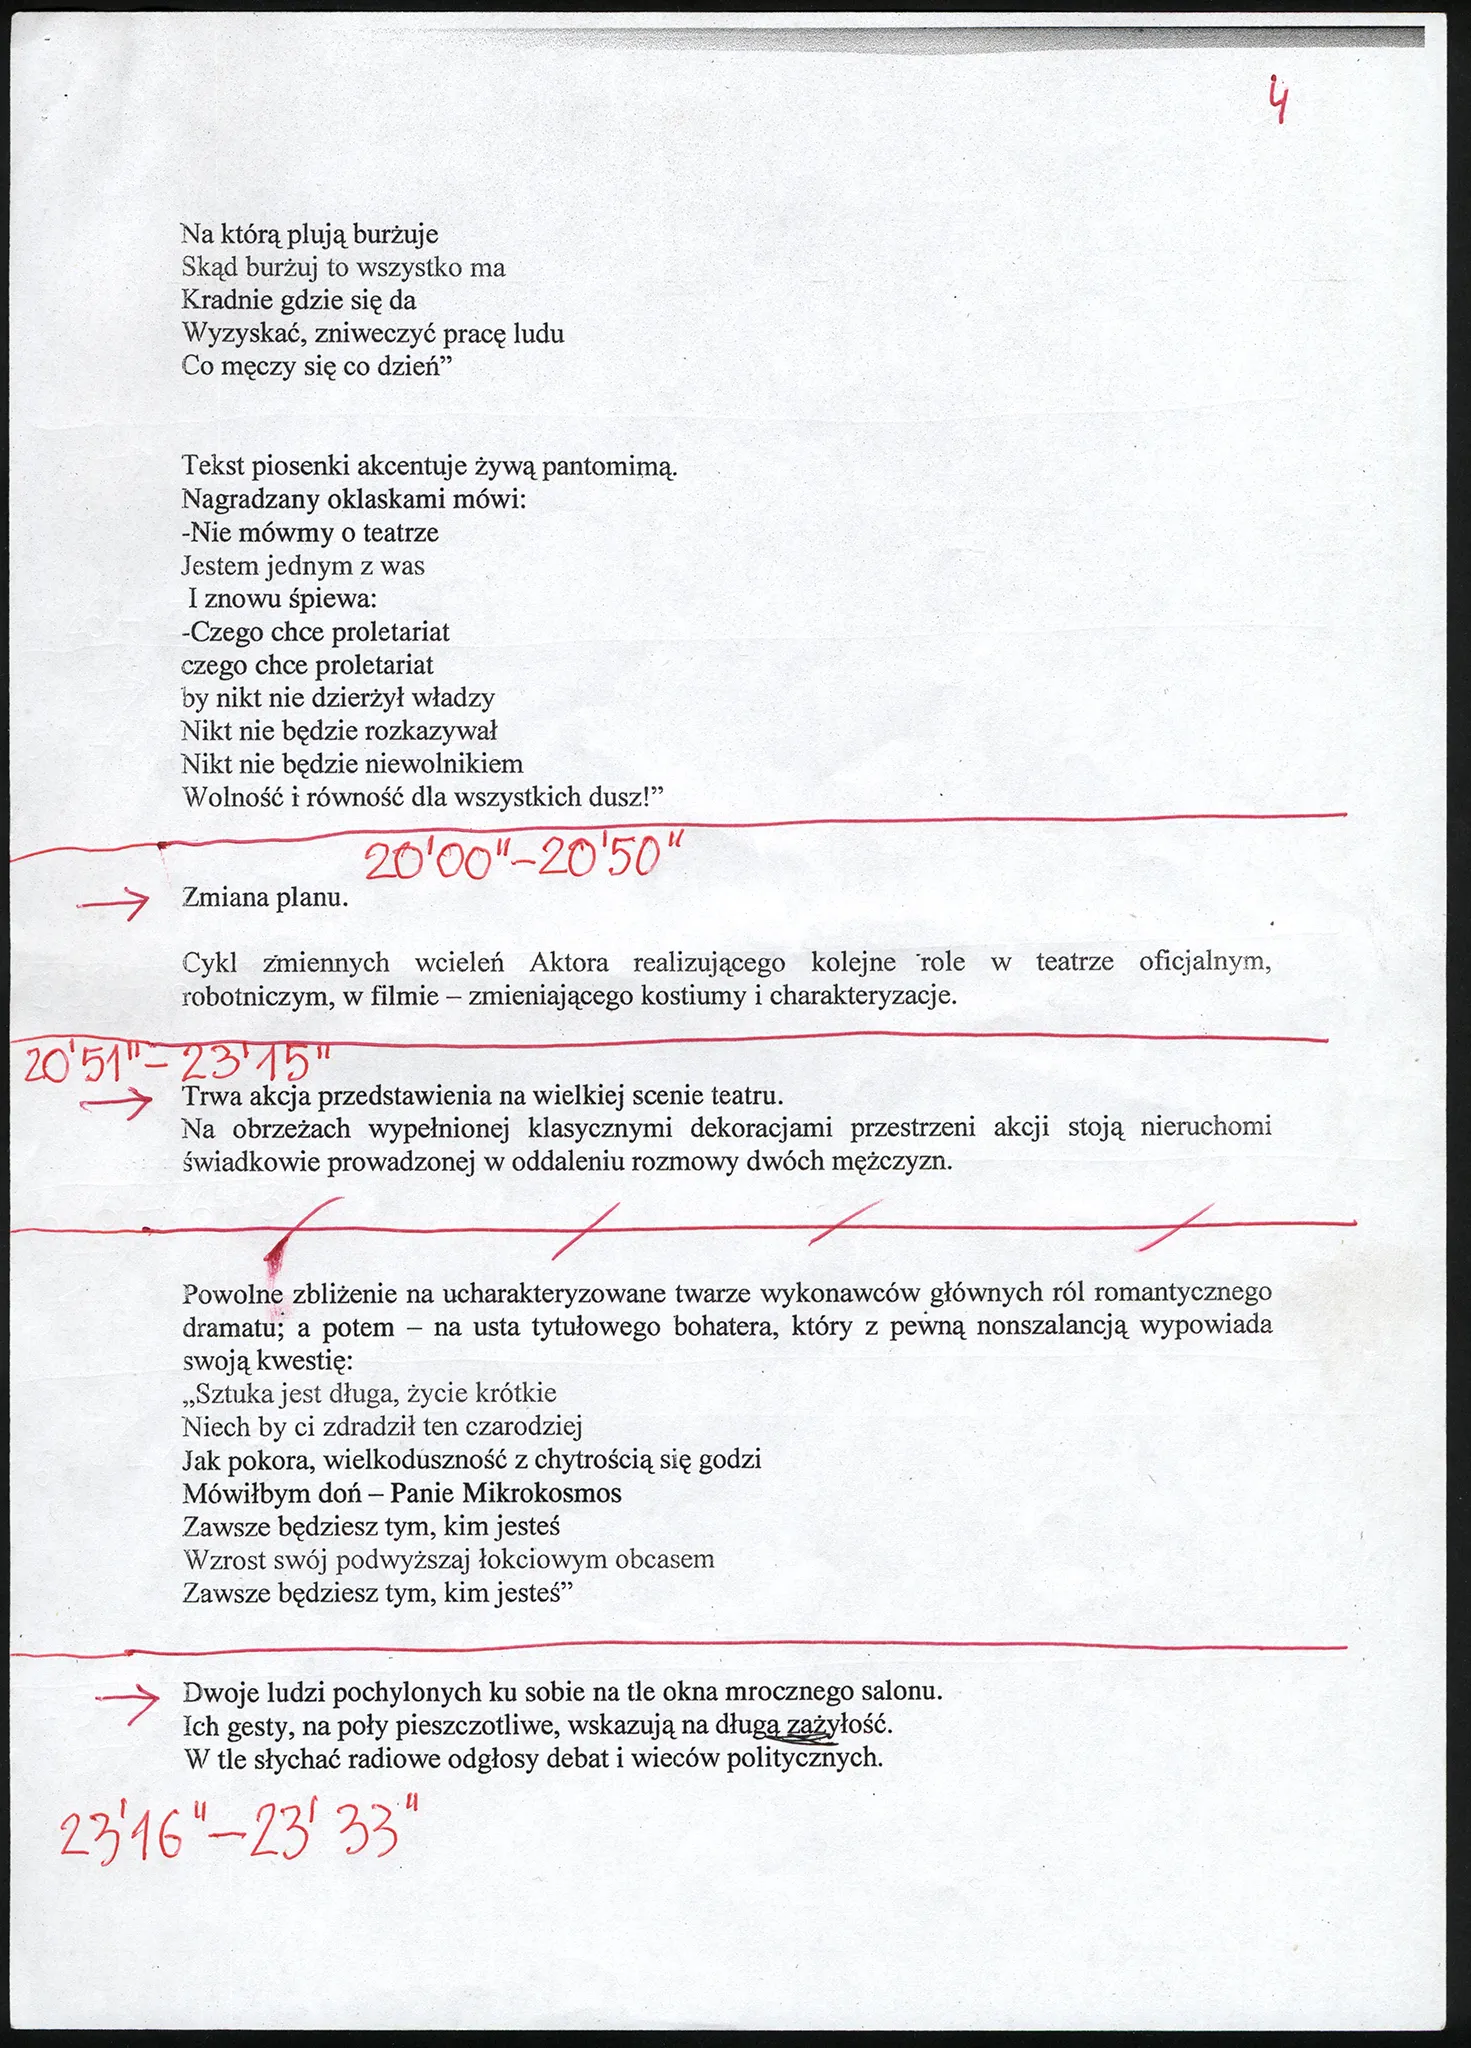 4
Na którą plują burżuje
Skąd burżuj to wszystko ma
Kradnie gdzie się da
Wyzyskać, zniweczyć pracę ludu
Co męczy się co dzień”
Tekst piosenki akcentuje żywą pantomimą.
Nagradzany oklaskami mówi:
-Nie mówmy o teatrze
Jestem jednym z was
I znowu śpiewa:
-Czego chce proletariat
czego chce proletariat
by nikt nie dzierżył władzy
Nikt nie będzie rozkazywał
Nikt nie będzie niewolnikiem
Wolność i równość dla wszystkich dusz!”
20'00"-20'50"
→ Zmiana planu.
Cykl zmiennych wcieleń Aktora realizującego kolejne role w teatrze oficjalnym,
robotniczym, w filmie – zmieniającego kostiumy i charakteryzacje.
20'51"-23'15"
→ Trwa akcja przedstawienia na wielkiej scenie teatru.
Na obrzeżach wypełnionej klasycznymi dekoracjami przestrzeni akcji stoją nieruchomi
świadkowie prowadzonej w oddaleniu rozmowy dwóch mężczyzn.
Powolne zbliżenie na ucharakteryzowane twarze wykonawców głównych ról romantycznego
dramatu; a potem – na usta tytułowego bohatera, który z pewną nonszalancją wypowiada
swoją kwestię:
„Sztuka jest długa, życie krótkie
Niech by ci zdradził ten czarodziej
Jak pokora, wielkoduszność z chytrością się godzi
Mówiłbym doń – Panie Mikrokosmos
Zawsze będziesz tym, kim jesteś
Wzrost swój podwyższaj łokciowym obcasem
Zawsze będziesz tym, kim jesteś”
→ Dwoje ludzi pochylonych ku sobie na tle okna mrocznego salonu.
Ich gesty, na poły pieszczotliwe, wskazują na długą zażyłość.
W tle słychać radiowe odgłosy debat i wieców politycznych.
23'16"-23'33"